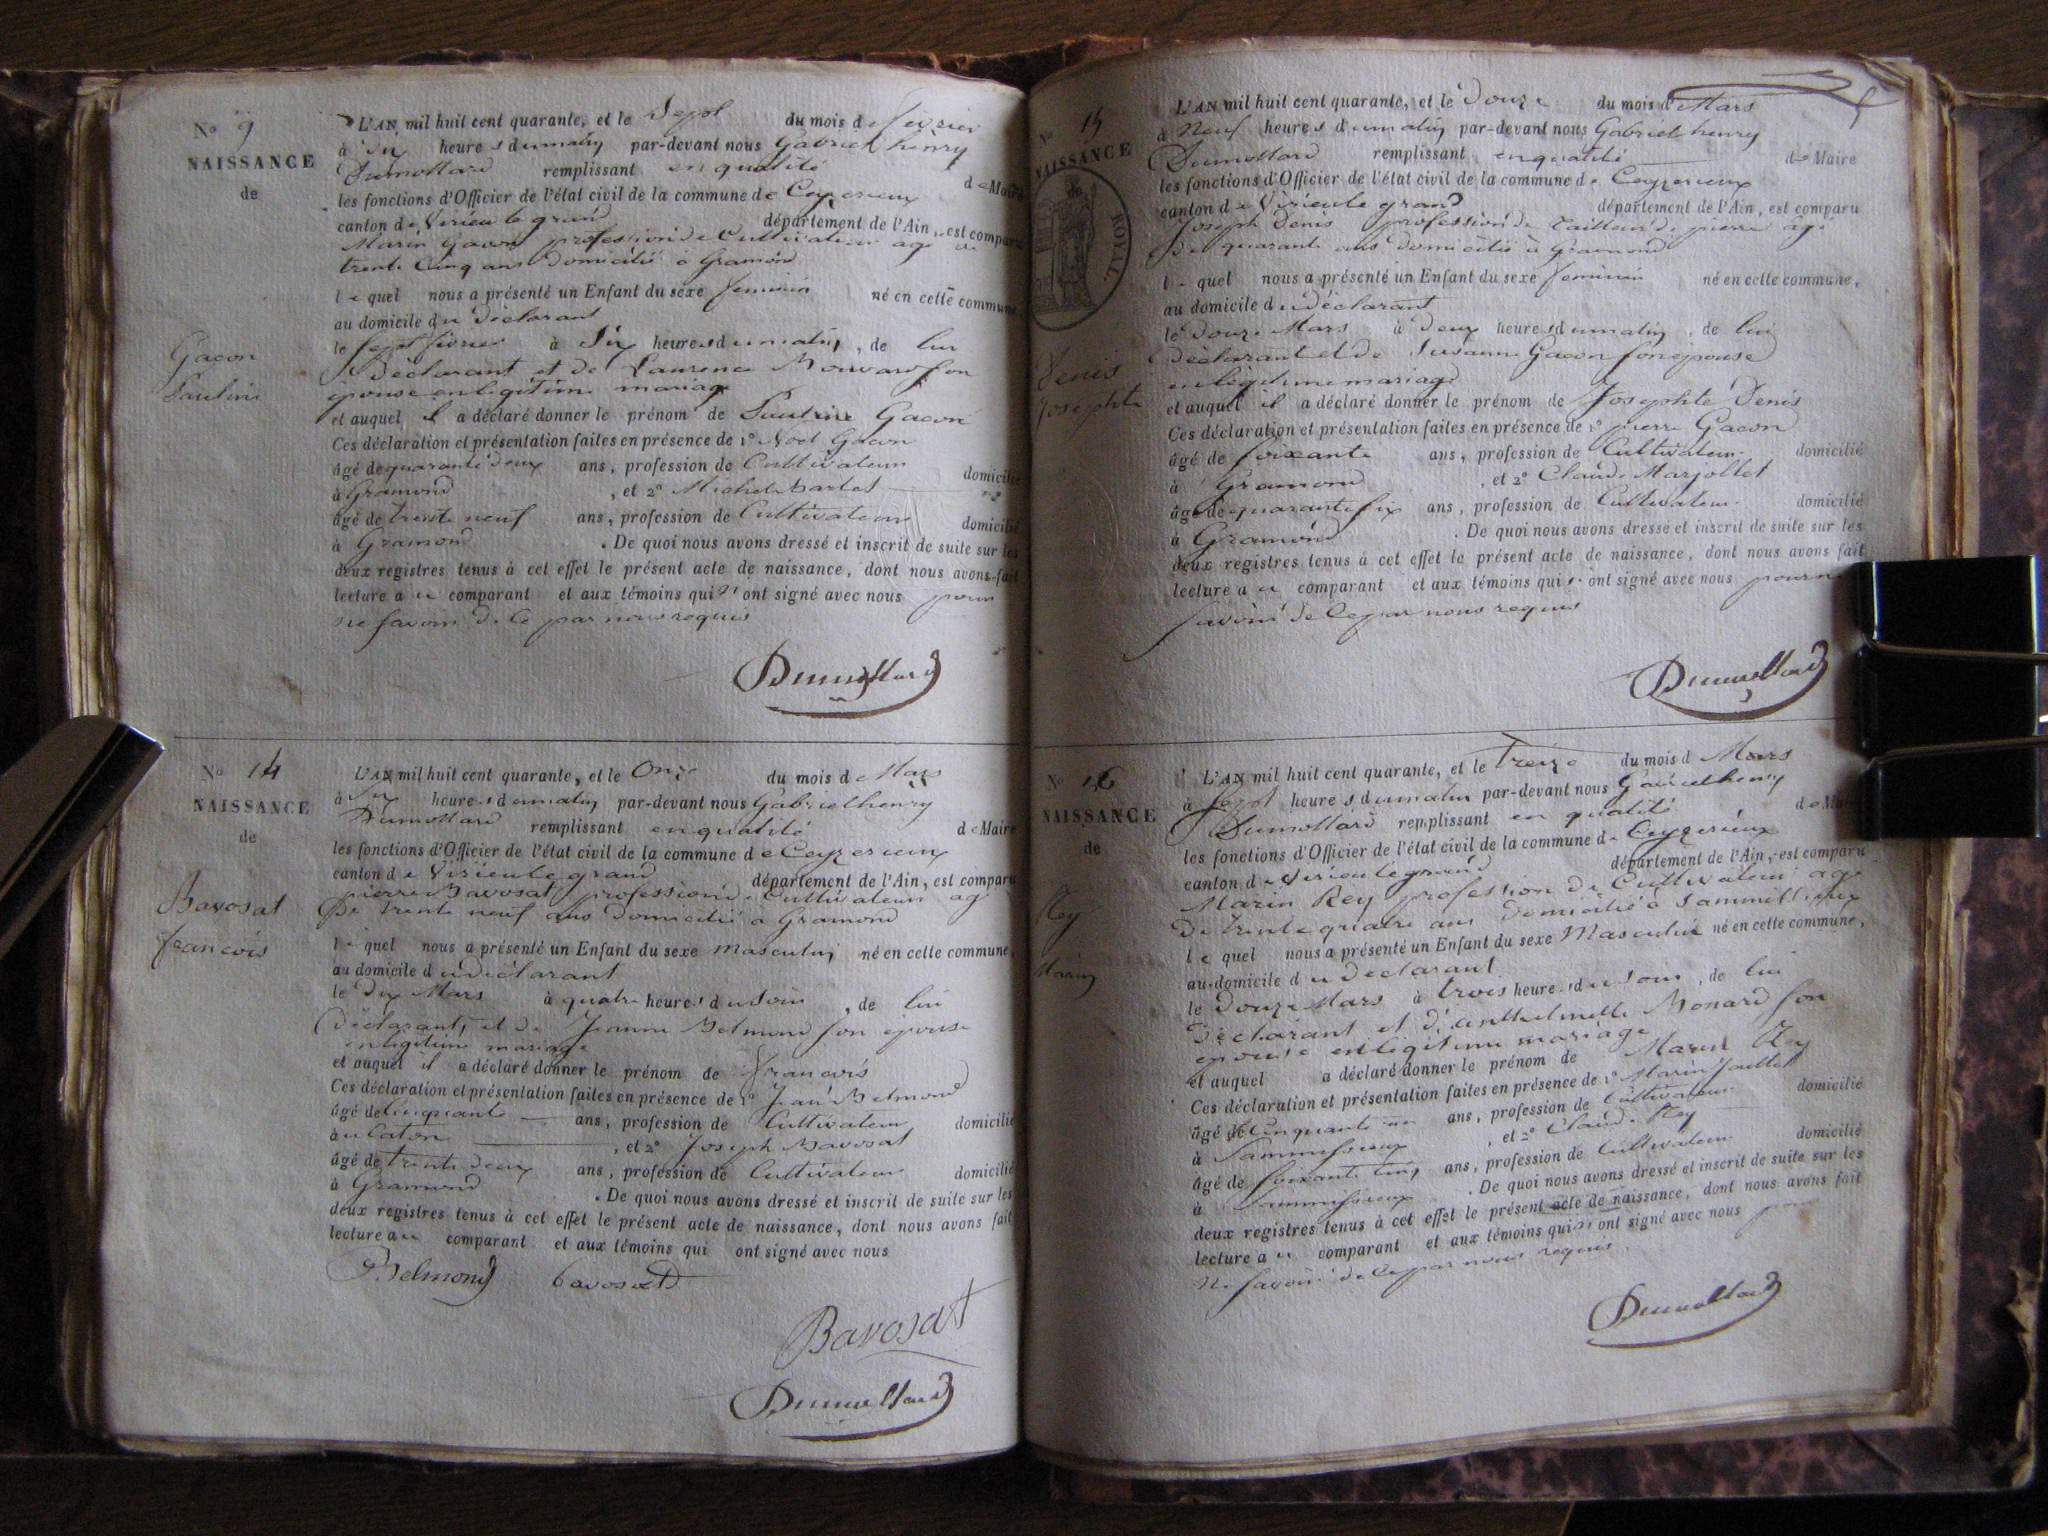 No 9
NAISSANCE
de
Gacon
Pauline
L'AN mil huit cent quarante, et le Sept du mois de février
à dix heures du matin par-devant nous Gabriel henry
Dumollard remplissant en qualité de Maire
les fonctions d'Officier de l'état civil de la commune de Ceyzerieux
canton de Virieu le grand département de l'Ain, est comparu
Marin Gacon profession de Cultivateur agé de
trente Cinq ans domicilié à Gramond
lequel nous a présenté un Enfant du sexe feminin né en cette commune,
au domicile du déclarant
le sept février à Six heures du matin, de lui
Déclarant et de Laurence son
épouse en légitime mariage
et auquel il a déclaré donner le prénom de Pauline Gacon
Ces déclaration et présentation faites en présence de 1º Noel Gacon
âgé de quarante deux ans, profession de Cultivateur domicilié
à Gramond, et 2º Michel
âgé de trente neuf ans, profession de Cultivateur domicilié
à Gramond. De quoi nous avons dressé et inscrit de suite sur les
deux registres tenus à cet effet le présent acte de naissance, dont nous avons fait
lecture au comparant et aux témoins qui n'ont signé avec nous pour
ne savoir de ce par nous requis
Dumollard
No 14
NAISSANCE
de
Bavosat
francois
L'AN mil huit cent quarante, et le Onze du mois de Mars
à heures du matin par-devant nous Gabriel henry
Dumollard remplissant en qualité de Maire
les fonctions d'Officier de l'état civil de la commune de Ceyzerieux
canton de Virieu le grand département de l'Ain, est comparu
pierre Bavosat profession de Cultivateur agé
De trente neuf ans domicilié à Gramond
lequel nous a présenté un Enfant du sexe masculin né en cette commune,
au domicile du déclarant
le dix Mars à quatre heures du soir, de lui
déclarant, et de Jeanne Belmond son épouse
en légitime mariage
et auquel il a déclaré donner le prénom de francois
Ces déclaration et présentation faites en présence de 1º Jean Belmond
âgé de Cinquante ans, profession de Cultivateur domicilié
à, et 2º Joseph Bavosat
âgé de trente deux ans, profession de Cultivateur domicilié
à Gramond. De quoi nous avons dressé et inscrit de suite sur les
deux registres tenus à cet effet le présent acte de naissance, dont nous avons fait
lecture au comparant et aux témoins qui ont signé avec nous
Belmond bavosat
Bavosat
Dumollard
No 15
NAISSANCE
de
ROYAL
Denis
Josephte
L'AN mil huit cent quarante, et le Douze du mois de Mars
à Neuf heures du matin par-devant nous Gabriel henry
Dumollard remplissant en qualité de Maire
les fonctions d'Officier de l'état civil de la commune de Ceyzerieux
canton de Virieu le grand département de l'Ain, est comparu
Joseph Denis profession de Tailleur de pierre agé
De quarante ans domicilié à Gramond
lequel nous a présenté un Enfant du sexe feminin né en cette commune,
au domicile du déclarant
le Douze Mars à Deux heures du matin, de lui
déclarant et de Susanne Gacon son épouse
en légitime mariage
et auquel il a déclaré donner le prénom de Josephte Denis
Ces déclaration et présentation faites en présence de 1º pierre Gacon
âgé de soixante ans, profession de Cultivateur domicilié
à Gramond, et 2º Claude Marjollet
âgé de quarante six ans, profession de Cultivateur domicilié
à Gramond. De quoi nous avons dressé et inscrit de suite sur les
deux registres tenus à cet effet le présent acte de naissance, dont nous avons fait
lecture au comparant et aux témoins qui n'ont signé avec nous pour ne
savoir de ce par nous requis
Dumollard
No 16
NAISSANCE
de
Rey
Marin
L'AN mil huit cent quarante, et le Treize du mois de Mars
à Sept heures du matin par-devant nous Gabriel henry
Dumollard remplissant en qualité de Maire
les fonctions d'Officier de l'état civil de la commune de Ceyzerieux
canton de Virieu le grand département de l'Ain, est comparu
Marin Rey profession de Cultivateur agé
De trente quatre ans Domicilié à
lequel nous a présenté un Enfant du sexe Masculin né en cette commune,
au domicile du déclarant
le Douze Mars à trois heures du soir, de lui
Déclarant et d'enthelmette Monard son
épouse en légitime mariage
et auquel a déclaré donner le prénom de Marin Rey
Ces déclaration et présentation faites en présence de 1º Marin
âgé de Cinquante un ans, profession de Cultivateur domicilié
à, et 2º Claude Rey
âgé de soixante cinq ans, profession de Cultivateur domicilié
à. De quoi nous avons dressé et inscrit de suite sur les
deux registres tenus à cet effet le présent acte de naissance, dont nous avons fait
lecture au comparant et aux témoins qui n'ont signé avec nous pour
Ne savoir de ce par nous requis
Dumollard